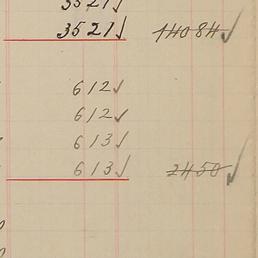 3521✓
3521✓ 14084✓
612✓
612✓
613✓
613✓ 2450✓